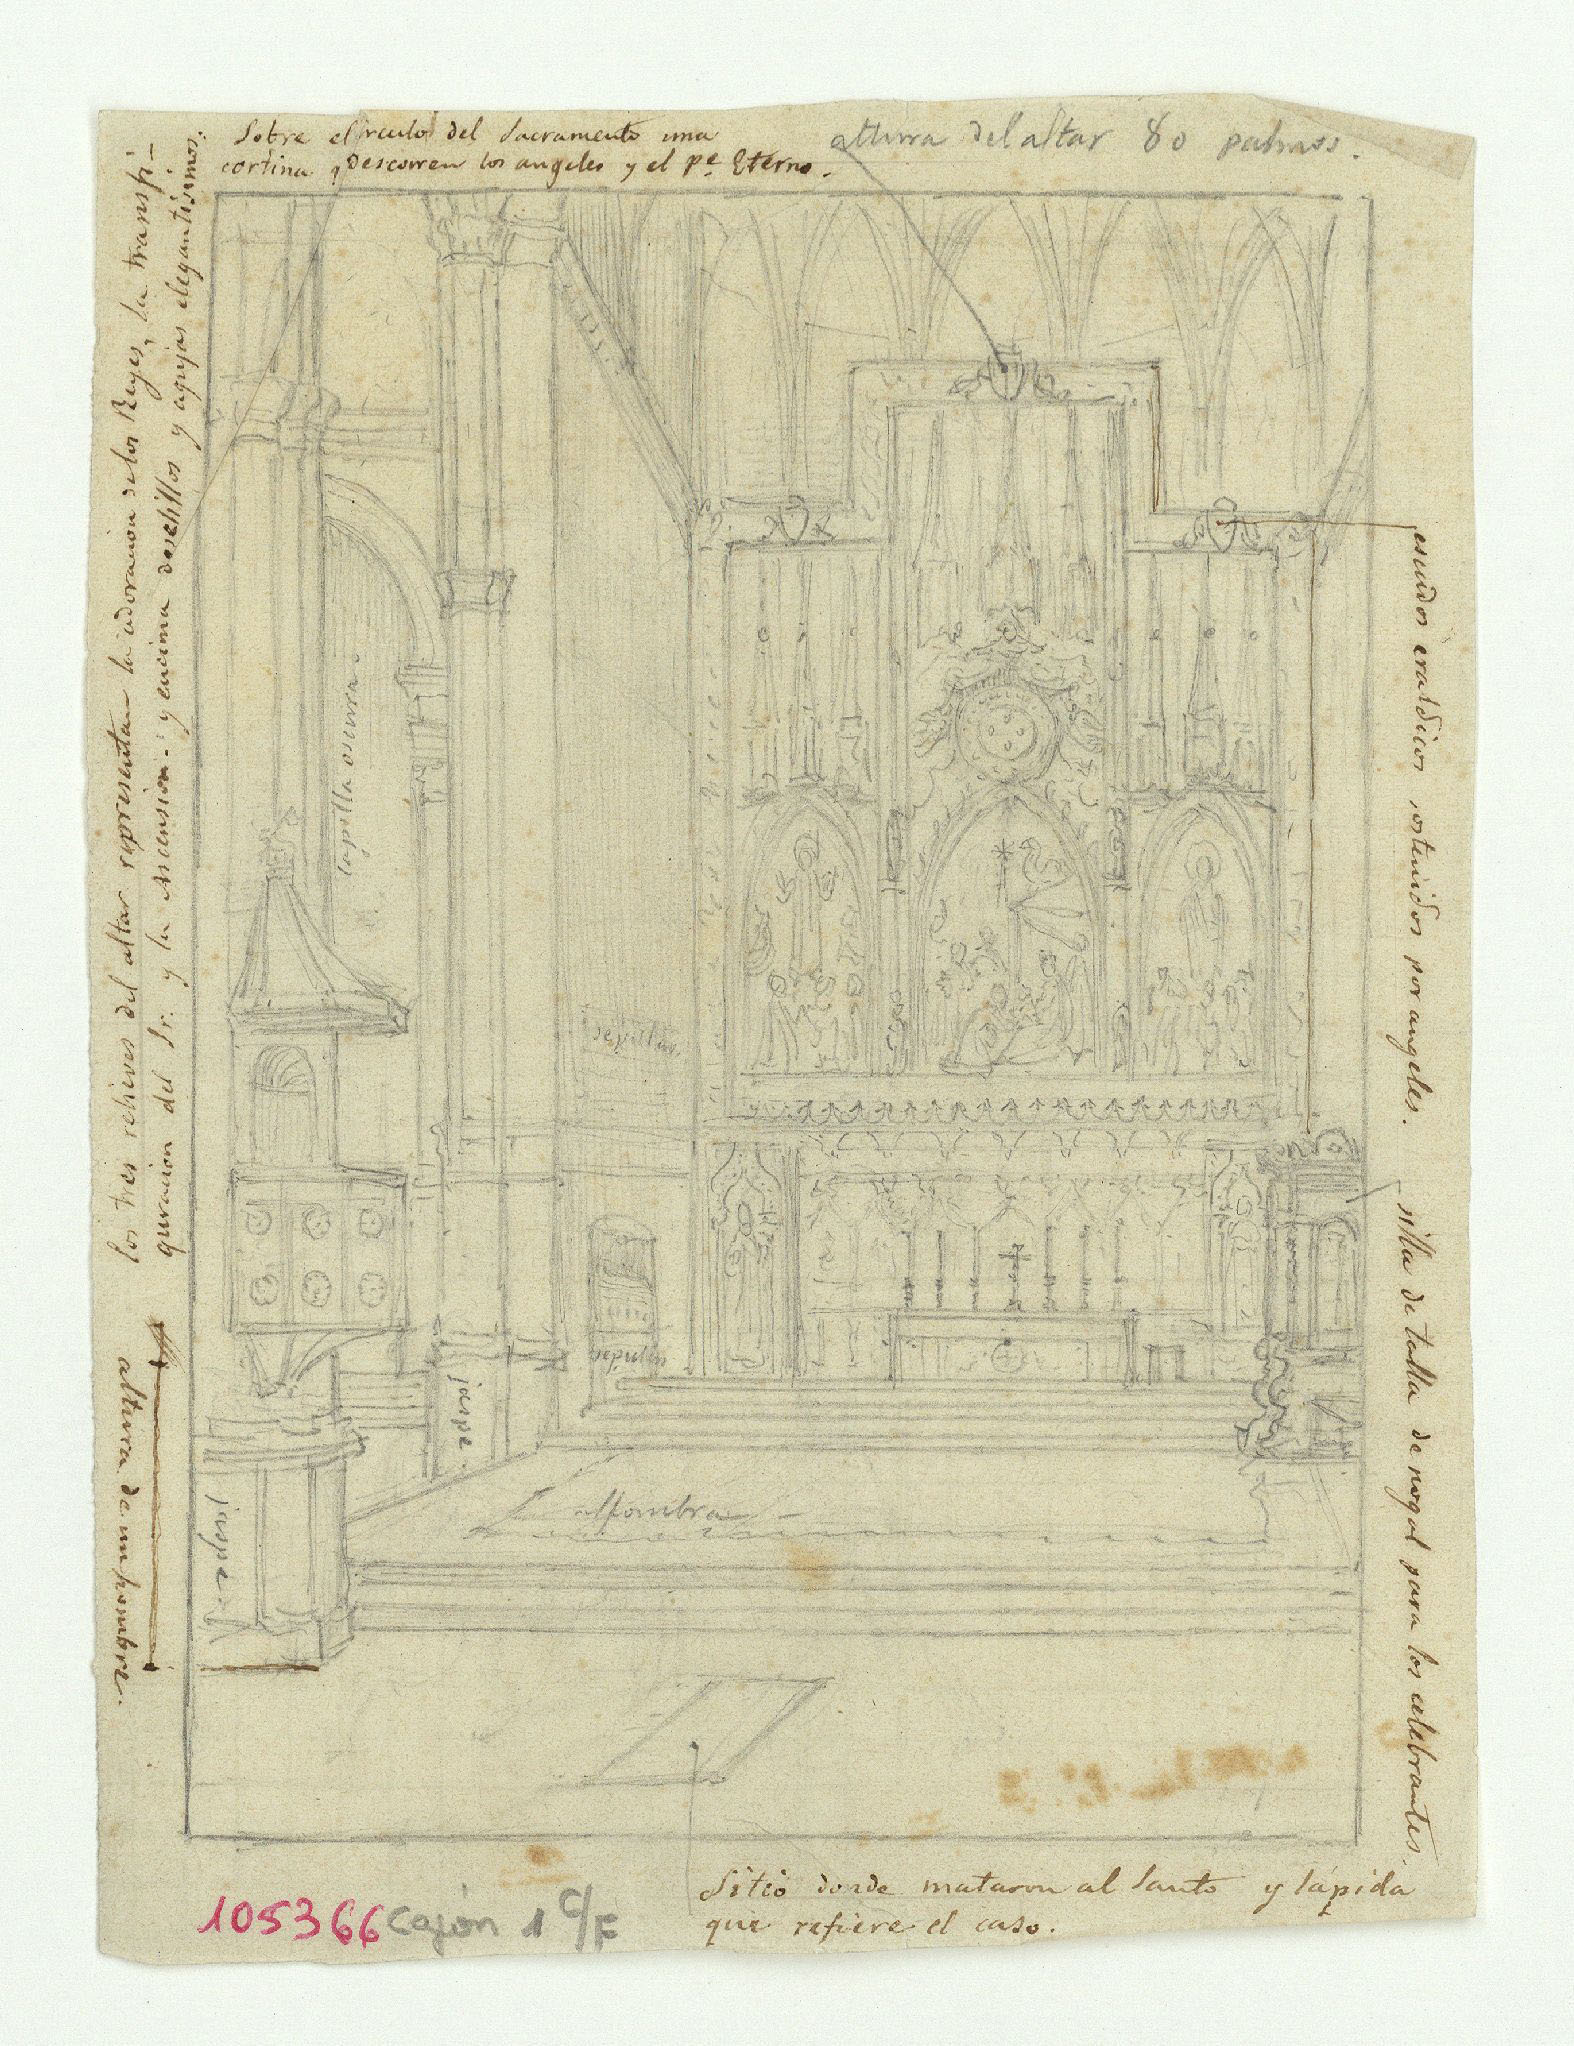 Sobre el írculo del Sacramento una
cortina q descorren los angeles y el pe. Eterno.
altura del altar 80 palmos.
los tres relieves del altar representan la adoracion de los Reyes, la transfi-
guracion del Sr. y la Ascension. y encima doselillos y agujas elegantisimos.
altura de un hombre.
escudos eraldicos sostenidos por angeles.
silla de talla de nogal para los celebrantes.
capilla oscura
sepulcro
jaspe.
jaspe
alfombra
Sitio donde mataron al Santo y lápida
que refiere el caso.
105366 Cajón 1 C/F